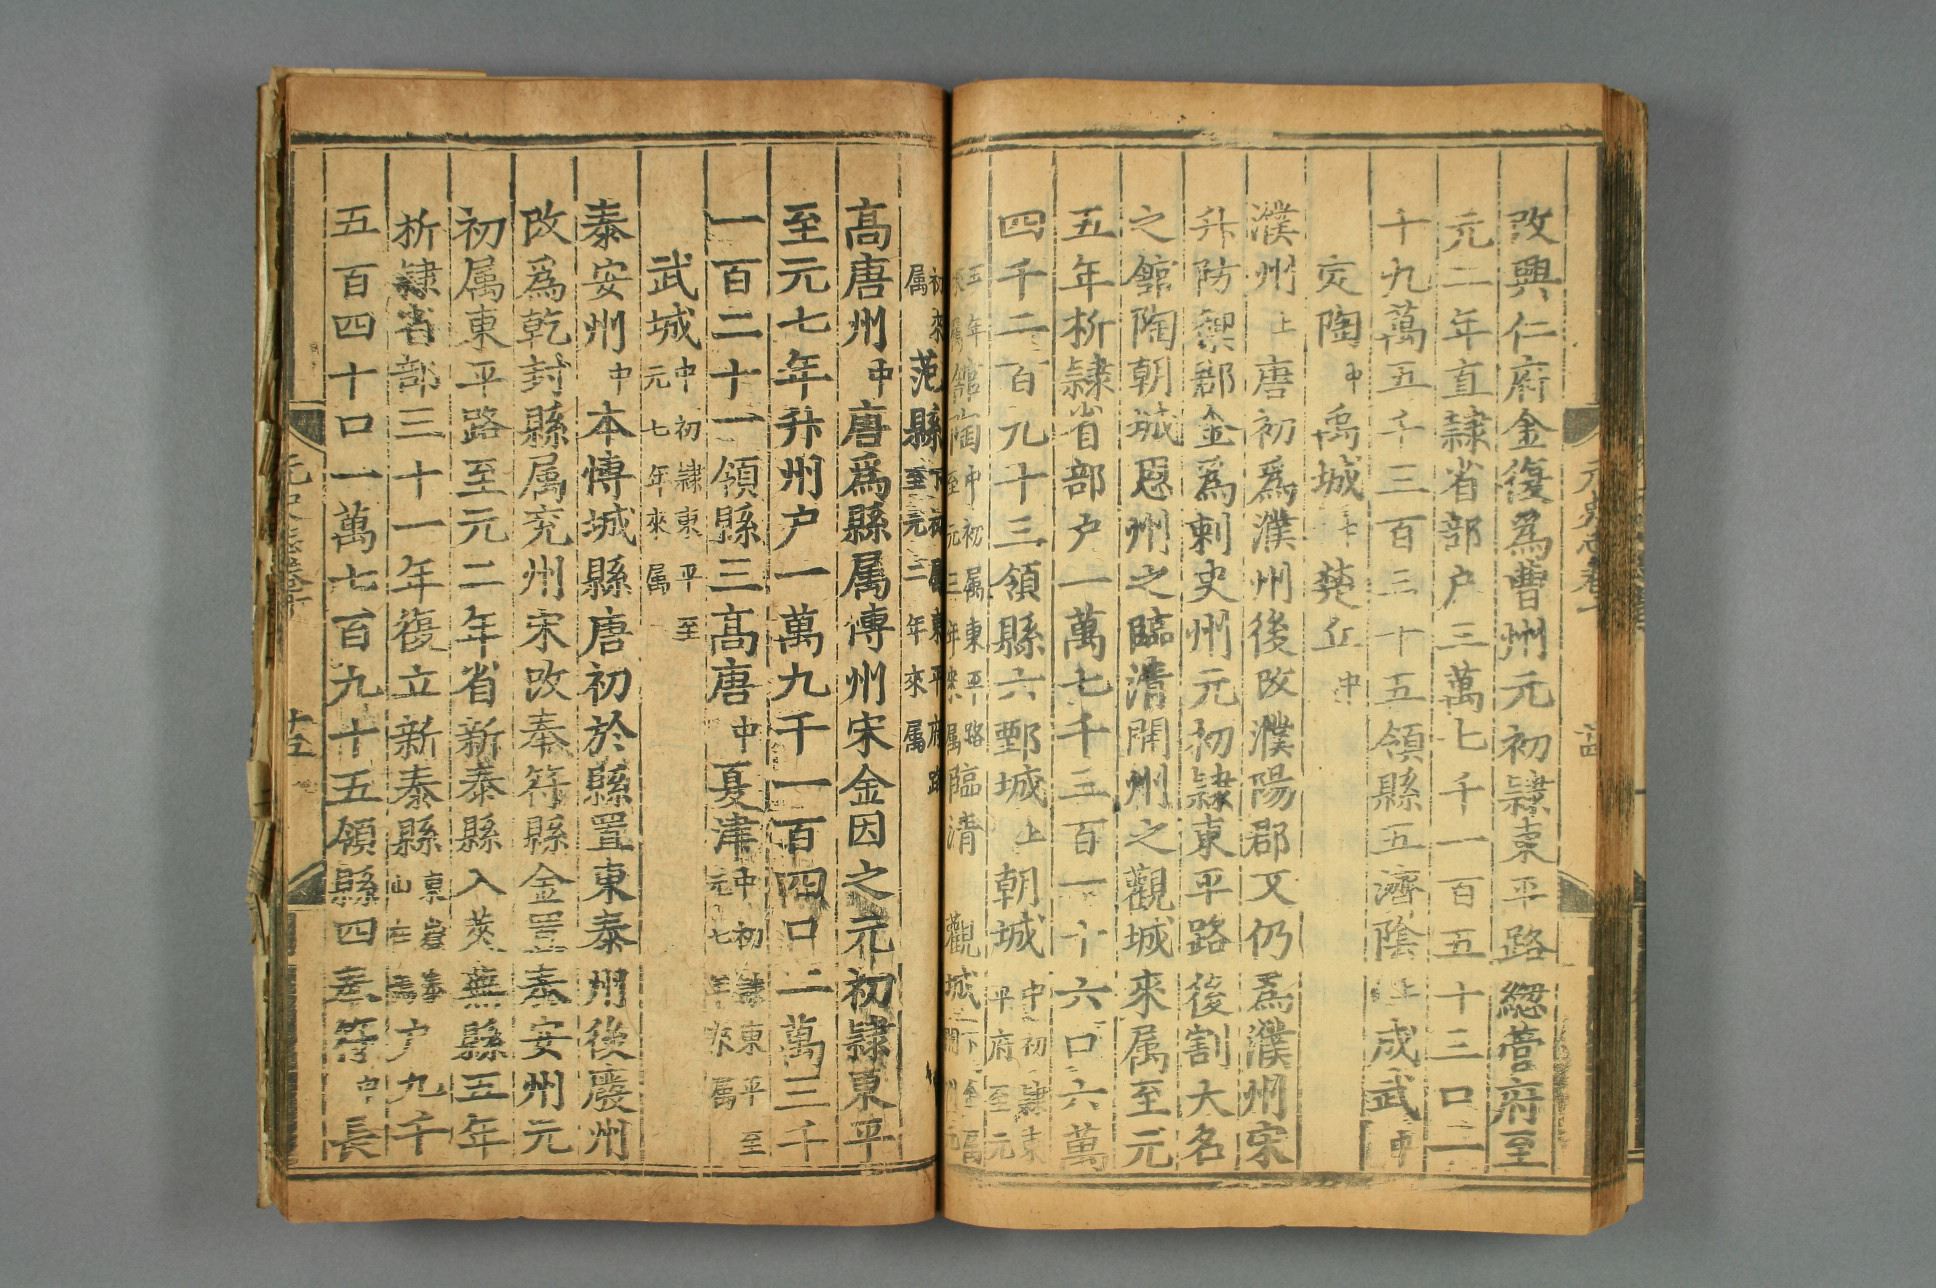 改興仁府金復爲曹州元初隷東平路緫菅府至
元二年直隷省部户三萬七千一百五十三口二
十九萬五千三百三十五領縣五濟陰上成武中
定陶中禹城上楚丘中
濮州上唐初爲濮州後改濮陽郡又仍爲濮州宋
升防禦郡金爲刺史州元初隷東平路後割大名
之館陶朝城恩州之臨清開州之觀城來属至元
五年析隷省部户一萬七千三百一十六口六萬
四千二百元十三領縣六鄄城上朝城中初隷東平府至元
五年來属館陶中初属東平路至元三年來属臨清觀城下金属開州元
初來属范縣下初属東平府路至元二年來属
高唐州中唐爲縣属博州宋金因之元初隷東平
至元七年升州户一萬九千一百四口二萬三千
一百二十一領縣三高唐中夏津中初隷東平至元七年來属
武城中初隷東平至元七年來属
泰安州中本博城縣唐初於縣置東泰州後廢州
改爲乾封縣属兖州宋改奉符縣金置泰安州元
初属東平路至元二年省新泰縣入萊蕪縣五年
析隷省部三十一年復立新泰縣東岳泰山在焉户九千
五百四十口一萬七百九十五領縣四奉符中長
元史志卷十
十五